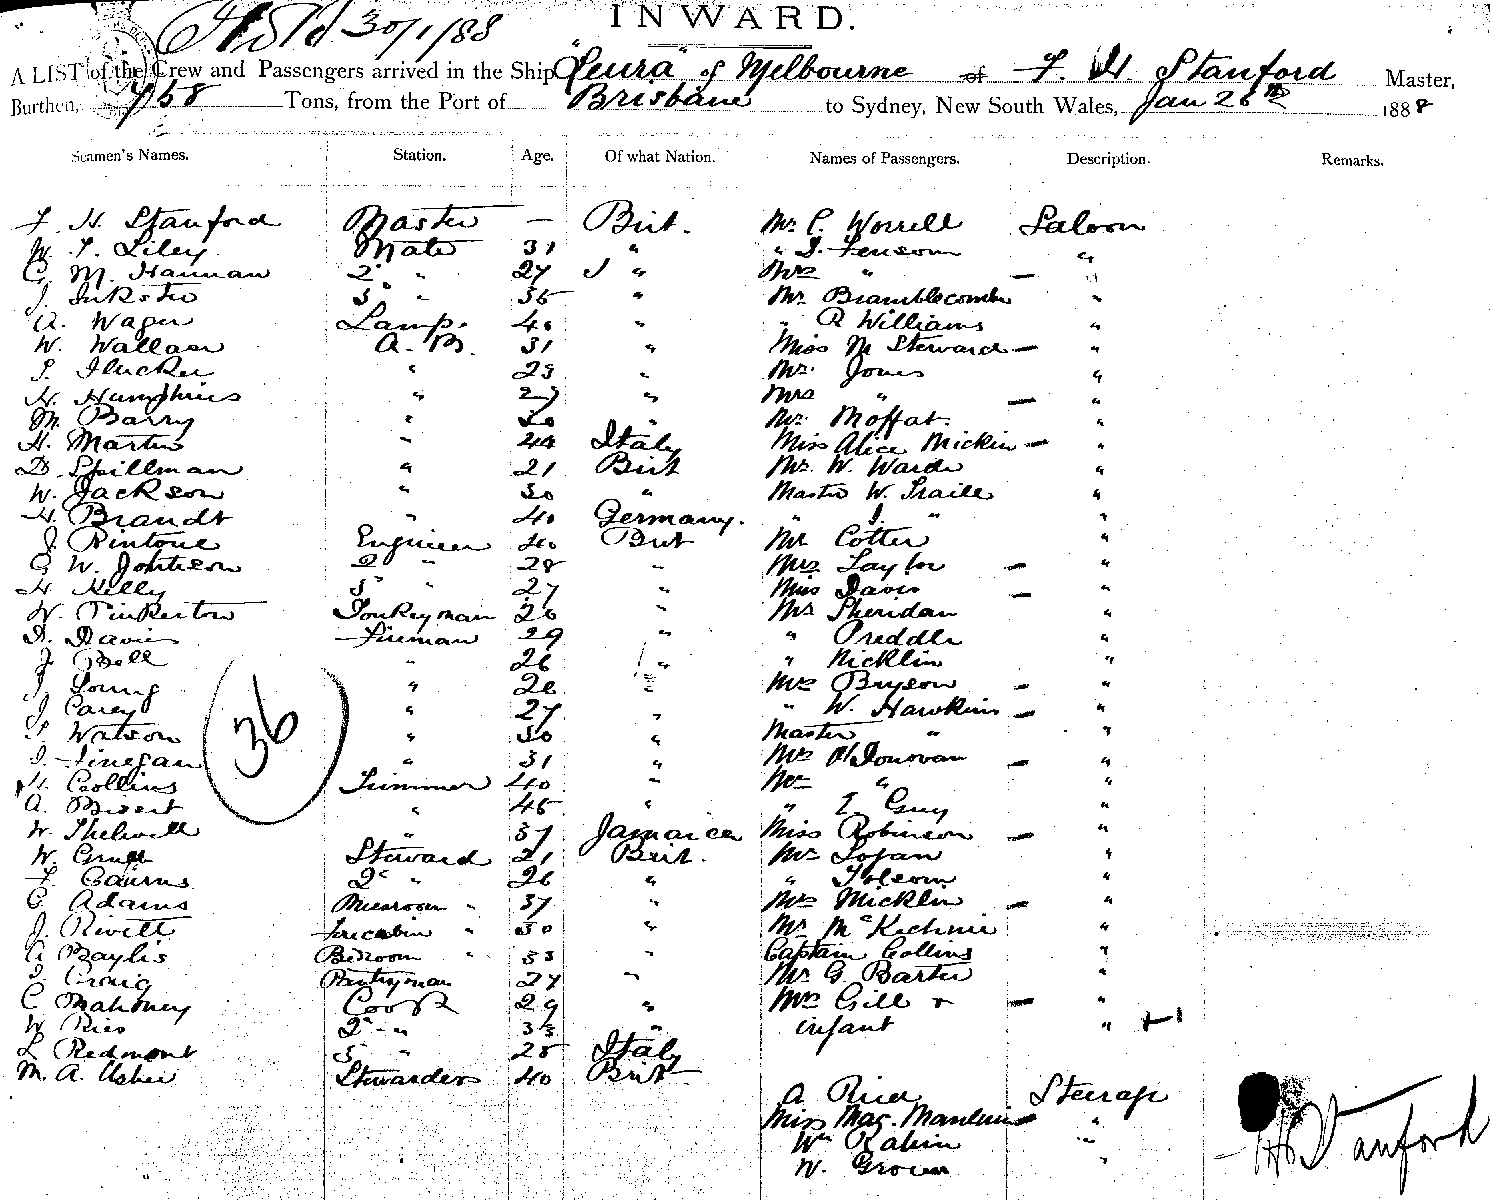 30/1/88
INWARD.
A LIST of the Crew and Passengers arrived in the Ship "Leura" of Melbourne of F. H. Stanford Master,
Burthen, 768 Tons, from the Port of Brisbane to Sydney, New South Wales, Jan 26th 1888
Seamen's Names. Station. Age. Of what Nation. Names of Passengers. Description. Remarks.
F. H. Stanford Master — Brit. Mr C. Worrell Saloon
W. F. Liley Mate 31 " " J. Fenson "
C. M. Hannan 2d " 27 " Mrs " — "
J. Inkster 3d " 35 " Mr Bramblecombe "
A. Wager Lamp. 40 " " R Williams "
W. Wallace A. B. 31 " Miss M Steward — "
" 23 " Mr. Jones "
H. Humphries " 27 " Mrs " — "
M. Barry " 30 " Mr. Moffat "
H. Martin " 44 Italy Miss Alice Micklin — "
D. Spillman " 21 Brit Mr. W. Warde "
W. Jackson " 30 " Master W. Traill "
H. Brandt " 40 Germany. " J. " "
J. Rintoul Engineer 40 Brit Mr Cotter "
G. W. Johnson 2d " 28 " Mrs Taylor — "
H Kelly 3d " 27 " Miss Davis — "
W. Pinkerton Donkeyman 26 " Mr Sheridan "
D. Davies Fireman 29 " " Preddle "
J. Bell " 26 " " Nicklin "
J Young " 26 " Mrs Bryson — "
J Carey " 27 " " W. Hawkins — "
Watson " 30 " Master " "
J. Finegan " 31 " Mrs O'Donovan — "
H. Collins Trimmer 40 " Mr " "
A. " 45 " " E Guy "
W. Thelwell " 37 Jamaica Miss Robinson — "
W. Steward 21 Brit. Mr Logan "
F. Cairns 2d " 26 " " Folsom "
C Adams Messroom " 37 " Mrs Micklin — "
J. Rivett Forecabin " 30 " Mr McKechnie "
A Baylis Bedroom " 33 " Captain Collins "
J. Craig Pantryman 27 " Mr G Barter "
C Mahoney Cook 29 " Mrs Gill & — "
W Ries 2d " 33 " infant " +1
L Redmont 3d " 28 Italy
M. A. Usher Stewardess 40 Brit
36
A Rice Steerage
Miss Mag. — "
Wm Rabin "
W. "
F H Stanford